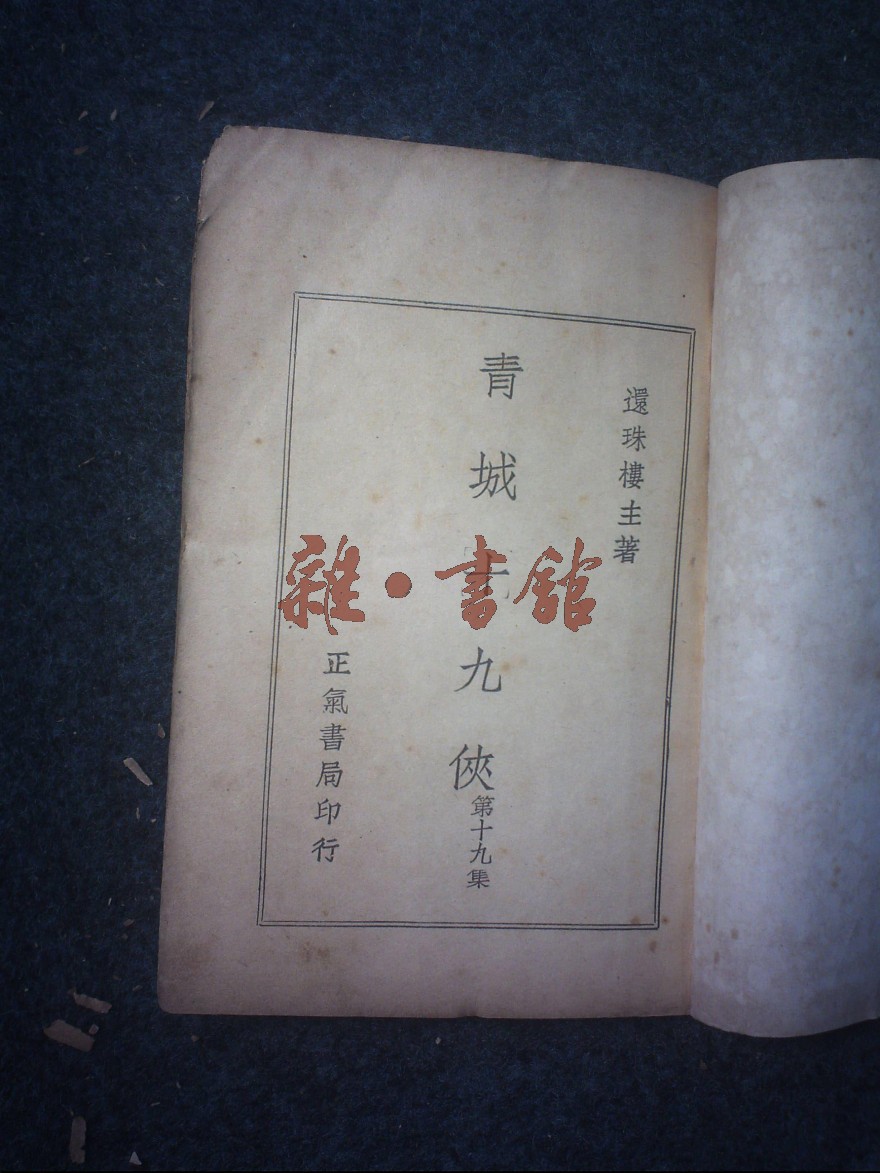 還珠樓主著
青城十九俠
第十九集
正氣書局印行
雜•書館